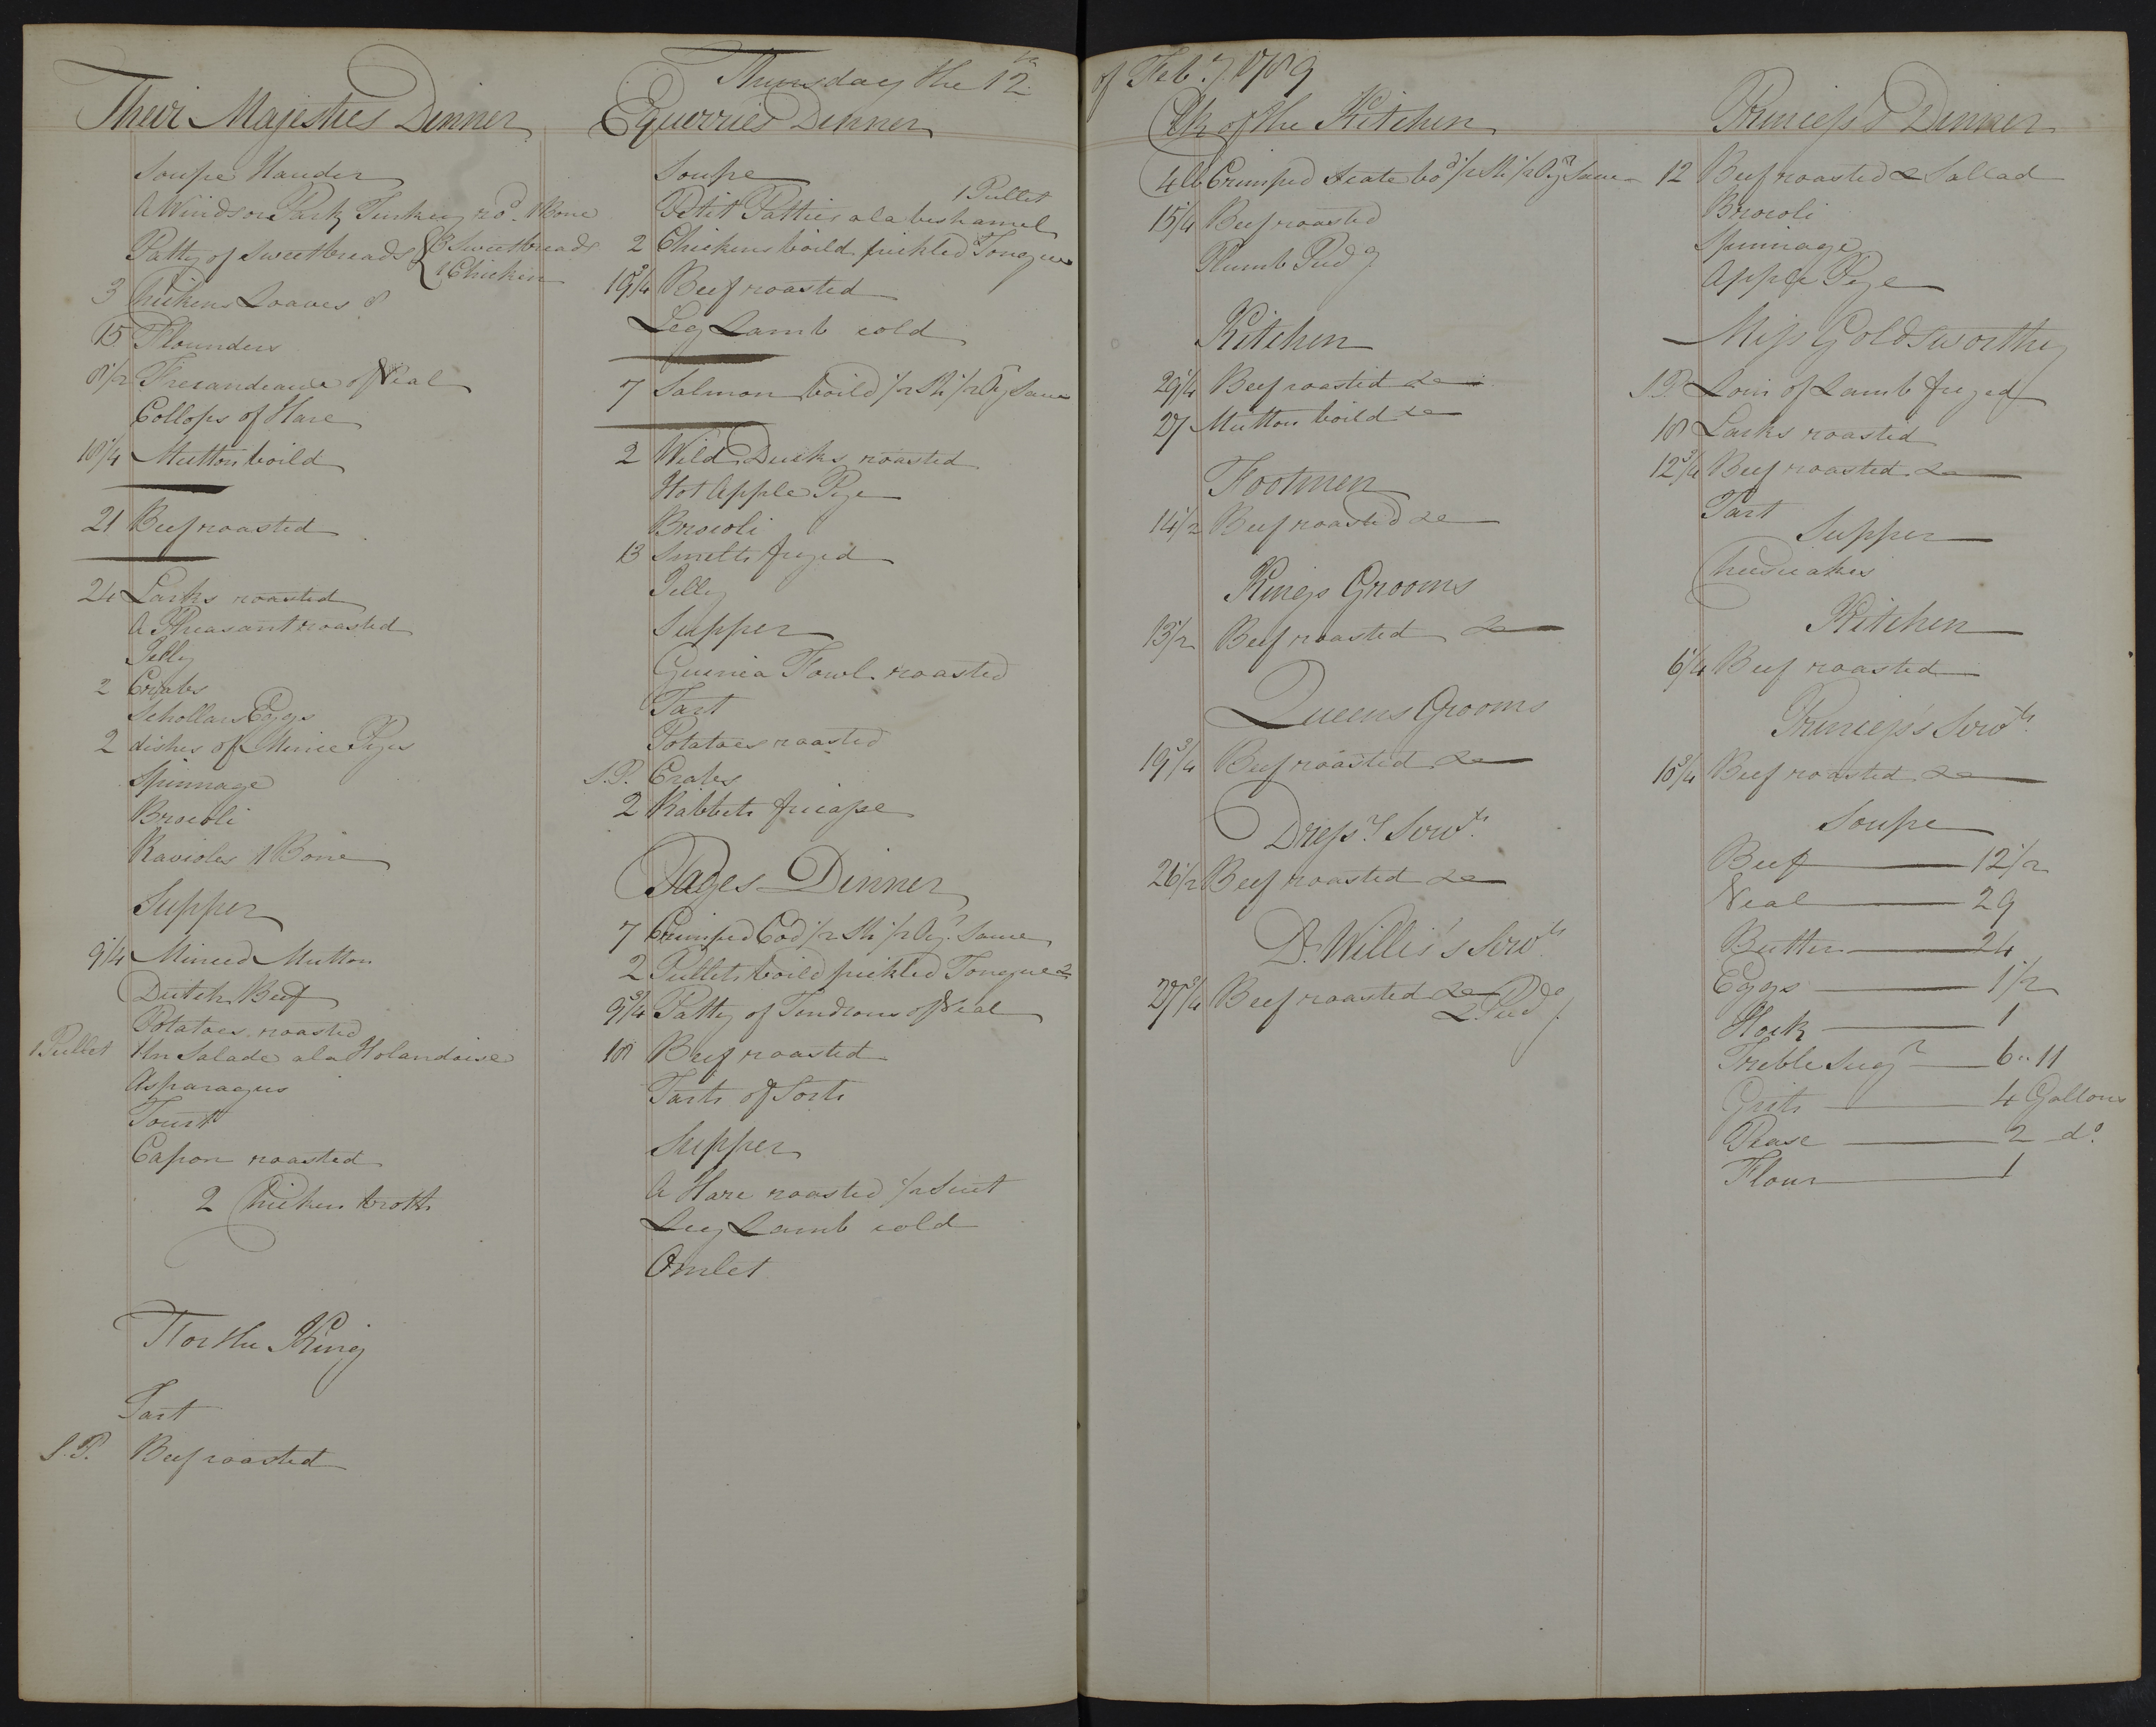 Thursday the 12th of Feby 1789
Their Majesties Dinner
Soupe
A Windsor Park Turkey ro.d 1 Bone
Patty of Sweetbreads { 3 Sweetbreads
1 Chicken
3 Chickens Loaves 8
15 Flounders
8 1/2 of Veal
Collops of Hare
10 1/4 Mutton boild
21 Beef roasted
24 Larks roasted
A Pheasant roasted
Jelly
2 Crabs
Schollars Eggs
2 dishes of Mince Pyes
Spinnage
Brocoli
Ravioles 1 Bone
Supper
9 1/4 Minced Mutton
Dutch Beef
Potatoes roasted
1 Pullet Un Salade a la Holandaise
Asparagus
Tourt
Capon roasted
2 Chicken broth
For the King
Tart
S.P. Beef roasted
Equerries Dinner
Soupe
1 Pullet
Petit Patties a la beshamel
2 Chickens boild pickled Tongue
19 3/4 Beef roasted
Leg Lamb cold
7 Salmon boild 1/2 Sh 1/2 Oyr Sauce
2 Wild Ducks roasted
Hot Apple Pye
Brocoli
13 Smelts fryed
Jelly
Supper
Guinea Fowl roasted
Tart
Potatoes roasted
S.P. Crabs
2 Rabbets fricasse
Pages Dinner
7 Crimped Cod 1/2 Sh 1/2 Oyr Sauce
2 Pullets boild pickled Tongue &
9 3/4 Patty of Tendrons of Veal
18 Beef roasted
Tarts of Sorts
Supper
A Hare roasted 1/2 Suet
Leg Lamb cold
Omlet
Clk of the Kitchen
4 lb Crimped Scate bod 1/2 Sh 1/2 Oyr Sauce
15 1/4 Beef roasted
Plumb Pudg
Kitchen
29 1/4 Beef roasted &c
27 Mutton boild &c
Footmen
14 1/2 Beef roasted &c
Kings Grooms
13 1/2 Beef roasted &c
Queens Grooms
19 3/4 Beef roasted &c
Dressrs Servts
26 1/2 Beef roasted &c
Dr Willis's Servts
27 3/4 Beef roasted &c
2 Pudgs
Princess's Dinner
12 Beef roasted & Sallad
Brocoli
Spinnage
Apple Pye
Miss Goldsworthy
S.P. Loin of Lamb fryed
18 Larks roasted
12 3/4 Beef roasted &c
Tart
Supper
Cheescakes
Kitchen
6 1/4 Beef roasted
Princess's Servts
18 3/4 Beef roasted &c
Soupe
Beef 12 1/2
Veal 29
Butter 24
Eggs 1 1/2
Hock 1
Treble Sugr 6 .. 11
Grits 4 Gallons
Pease 2 do
Flour 1